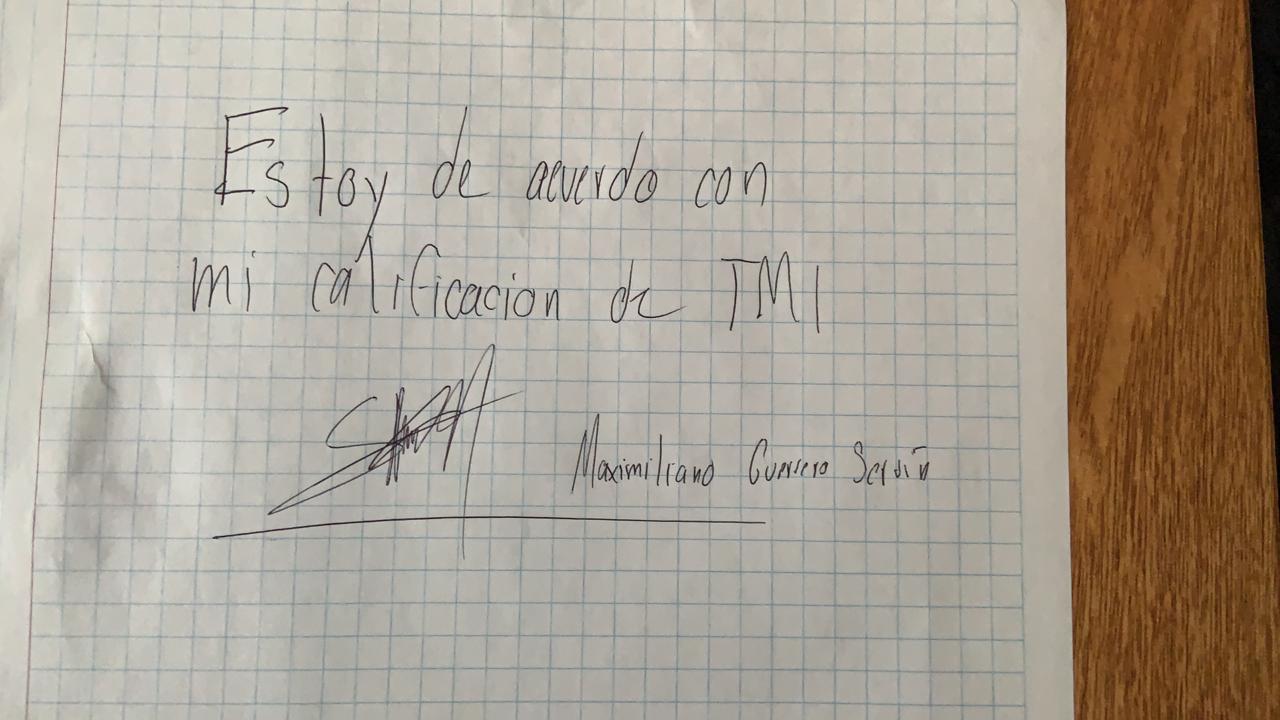 Estoy de acuerdo con
mi calificacion de TMI
Maximiliano Guerrero Servín